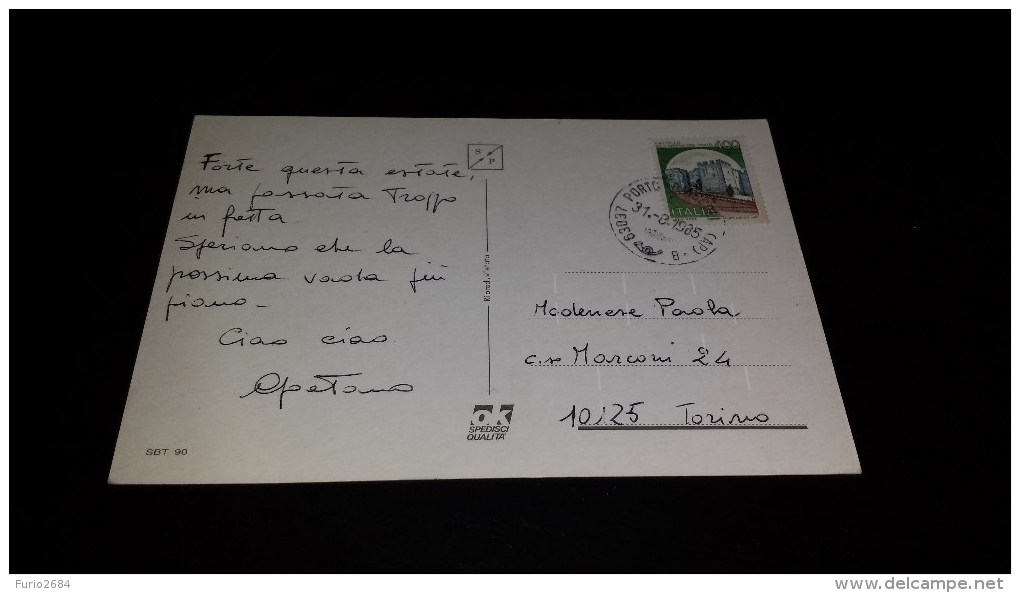 Forte questa estate,
ma passata troppo
in fretta
Speriamo che la
possima vada più
piano -
Ciao ciao
Gaetano
SBT 90
S
P
Riprod. vietata
ok
SPEDISCI
QUALITA'
400
ITALIA
63037 PORTO (AP)
31.-8.1985
B
Modenese Paola
c.so Marconi 24
10125 Torino
Furio2684
www.delcampe.net